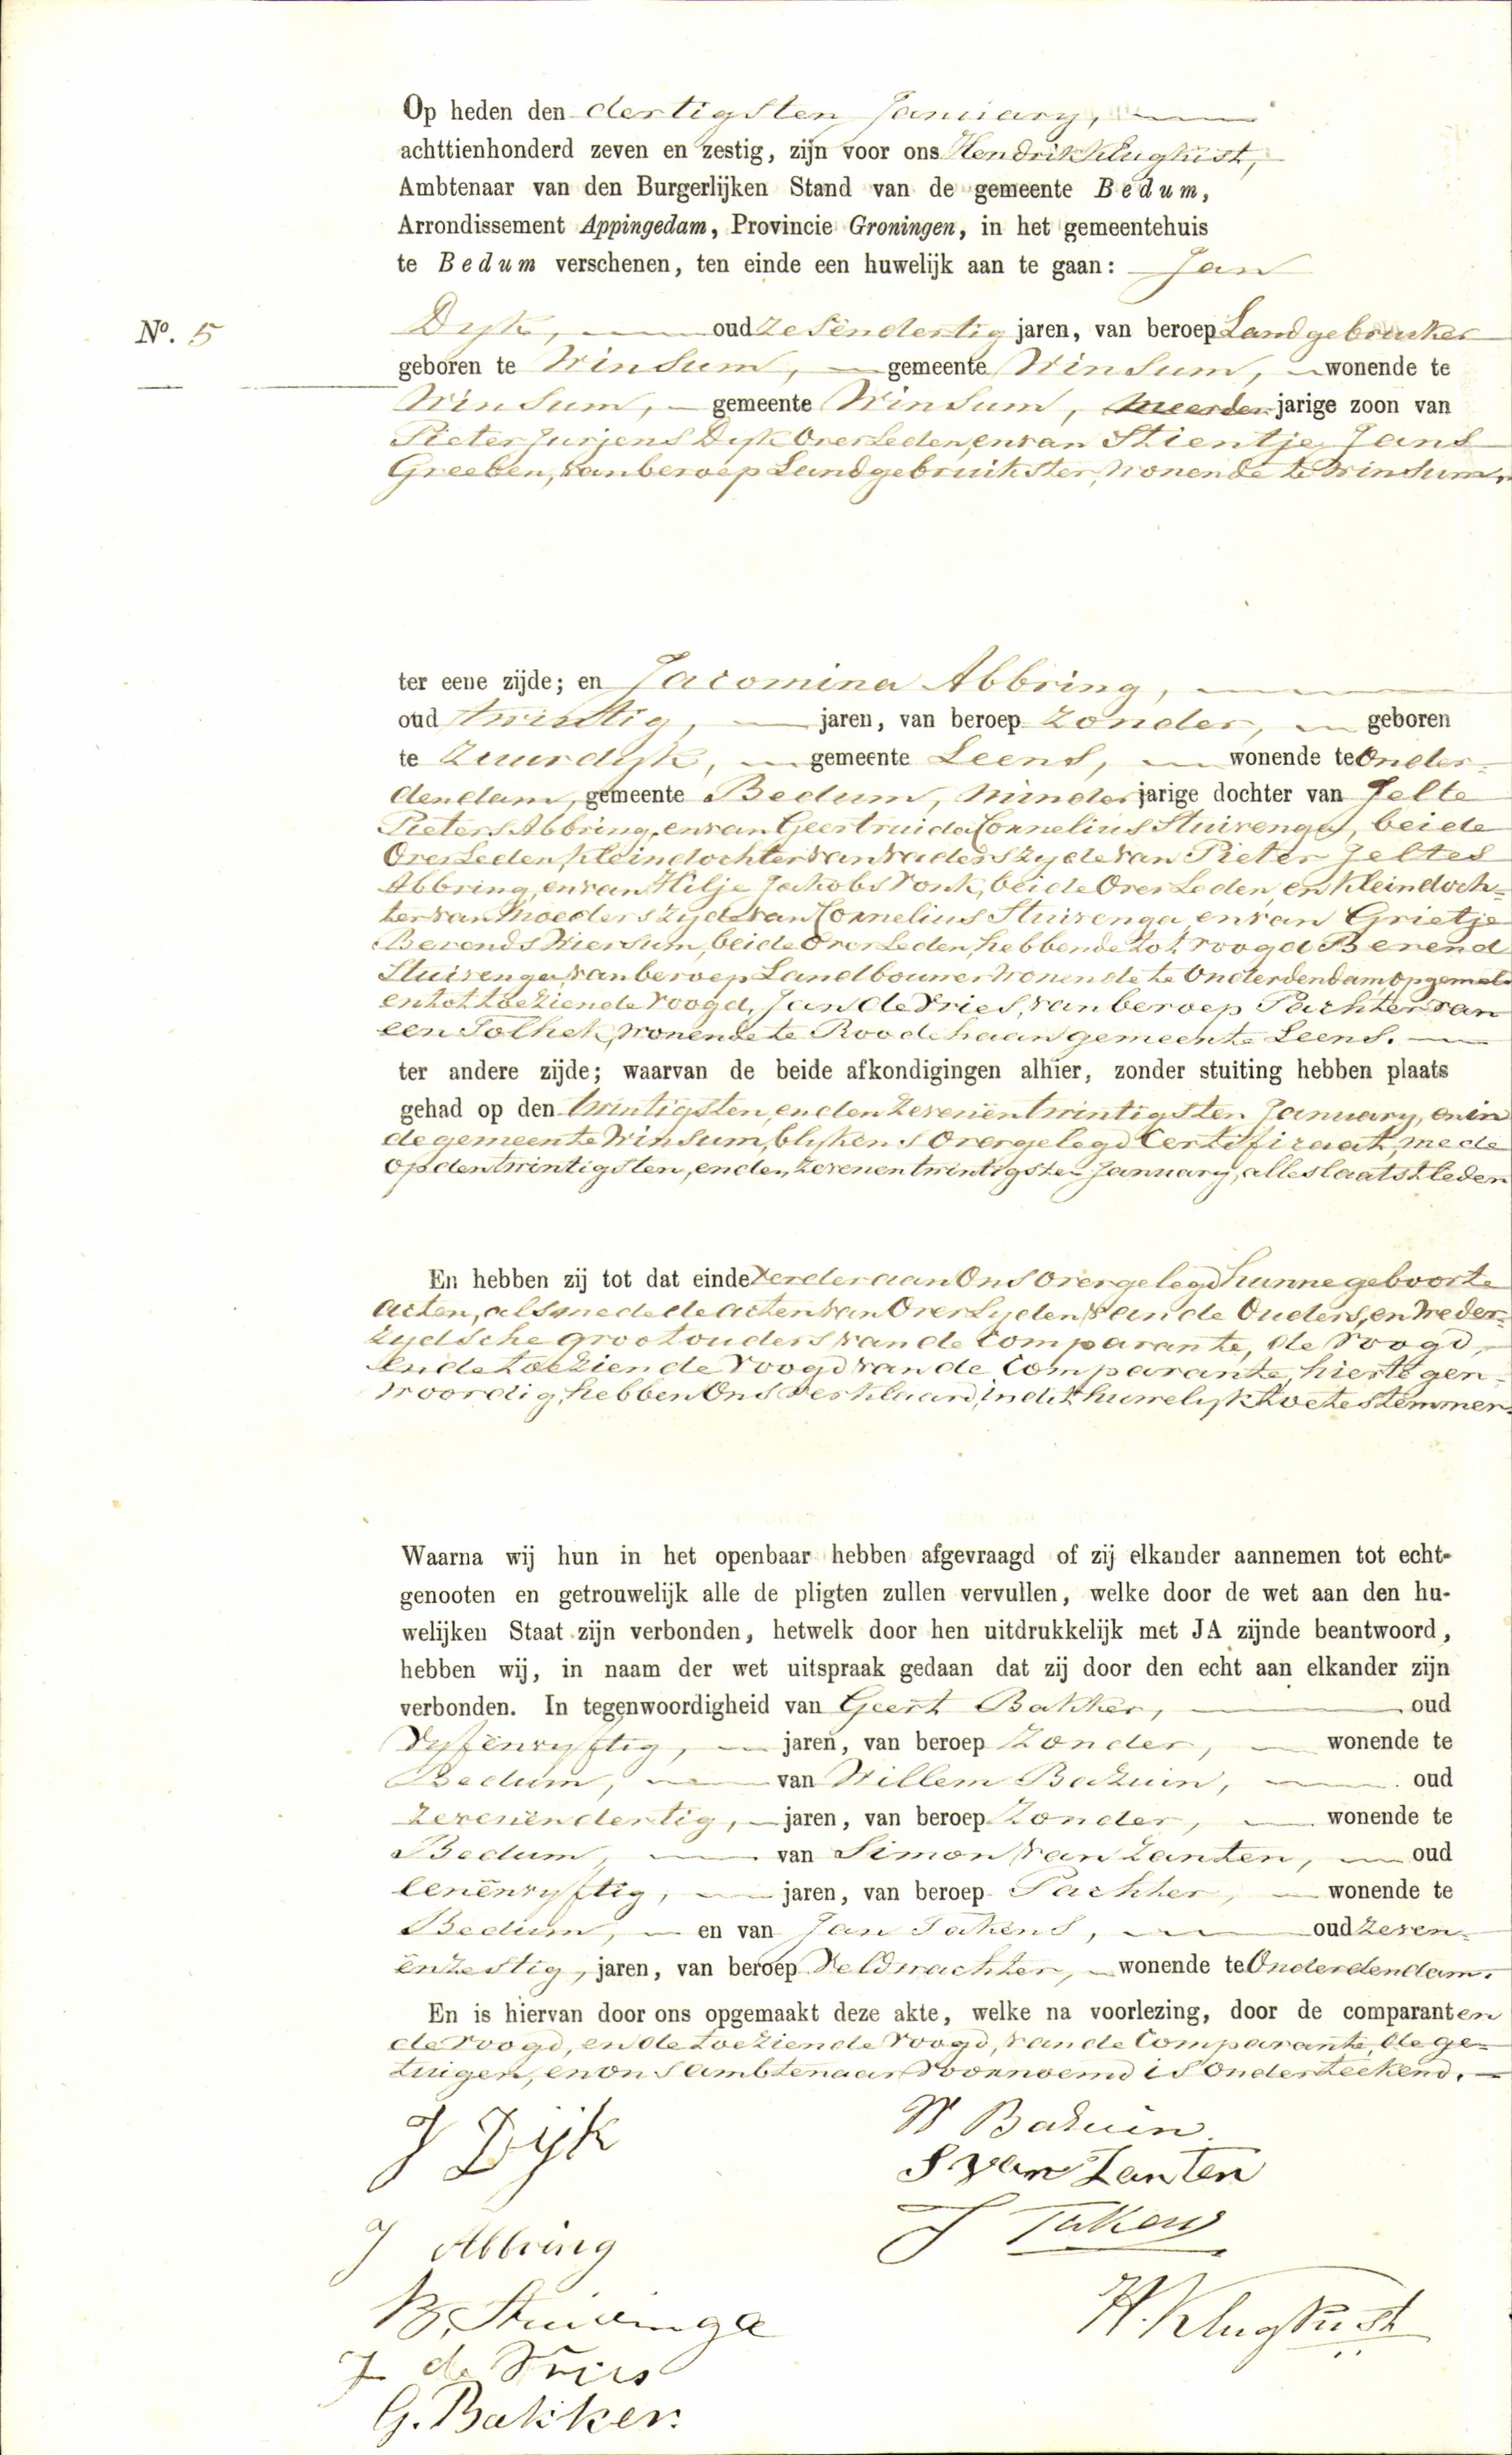 Op heden den dertigsten January,
achttienhonderd zeven en zestig, zijn voor ons Hendrik Klugkist,
Ambtenaar van den Burgerlijken Stand van de gemeente Bedum,
Arrondissement Appingedam, Provincie Groningen, in het gemeentehuis
te Bedum verschenen, ten einde een huwelijk aan te gaan: Jan
No. 5 Dijk, oud zesendertig jaren, van beroep Landgebruiker
geboren te Winsum, gemeente Winsum, wonende te
Winsum, gemeente Winsum, meerderjarige zoon van
Pieter Jurjens Dijk Overleden, en van Stientje Jans
Greeben, van beroep Landgebruikster, wonende te Winsum,
ter eene zijde; en Jacomina Abbring,
oud twintig, jaren, van beroep zonder, geboren
te Zuurdijk, gemeente Leens, wonende te Onder-
dendam, gemeente Bedum, minderjarige dochter van Jelte
Pieters Abbring, en van Geertruida Cornelius Stuivenga, beide
Overleden, kleindochter van vaders zyde van Pieter Jeltes
Abbring, en van Hilje Jakobs Vonk, beide Overleden, en kleindoch-
ter van moeders zyde van Cornelius Stuivenga, en van Grietje
Berends Wiersum, beide Overleden, hebbende tot voogd Berend
Stuivenga, van beroep Landbouwer wonende te Onderdendam opgemeld
en tot toeziende voogd, Jan de Vries, van beroep Pachter van
een Tolhek, wonende te Roodehaan gemeente Leens.
ter andere zijde; waarvan de beide afkondigingen alhier, zonder stuiting hebben plaats
gehad op den twintigsten, en den zevenëntwintigsten January, en in
de gemeente Winsum, blykens Overgelegd Certifikaat, mede
op den twintigsten, en den zevenentwintigsten January, alles laatstleden
En hebben zij tot dat einde verder aan Ons overgelegd hunne geboorte
acten, alsmede de acten van Overlyden van de Ouders, en weder-
zydsche grootouders van de Comparante, de voogd,
en de toeziende voogd van de Comparante, hier tegen-
woordig, hebben Ons verklaard, in dit huwelyk toe te stemmen.
Waarna wij hun in het openbaar hebben afgevraagd of zij elkander aannemen tot echt-
genooten en getrouwelijk alle de pligten zullen vervullen, welke door de wet aan den hu-
welijken Staat zijn verbonden, hetwelk door hen uitdrukkelijk met JA zijnde beantwoord,
hebben wij, in naam der wet uitspraak gedaan dat zij door den echt aan elkander zijn
verbonden. In tegenwoordigheid van Geert Bakker, oud
Vyfënvyftig, jaren, van beroep zonder, wonende te
Bedum, van Willem Bazuin, oud
zevenëndertig, jaren, van beroep zonder, wonende te
Bedum, van Simon van Zanten, oud
eenënvyftig, jaren, van beroep Pachter, wonende te
Bedum, en van Jan Takens, oud zeven-
ënzestig, jaren, van beroep Veldwachter, wonende te Onderdendam.
En is hiervan door ons opgemaakt deze akte, welke na voorlezing, door de comparanten
de voogd, en de toeziende voogd, van de Comparante, de ge-
tuigen, en ons ambtenaar voornoemd is Onderteekend.
J Dijk
W Bazuin.
S. van Zanten
J Takens
J Abbring
B. Stuivinga
H. Klugkist
J de Vries
G. Bakker.